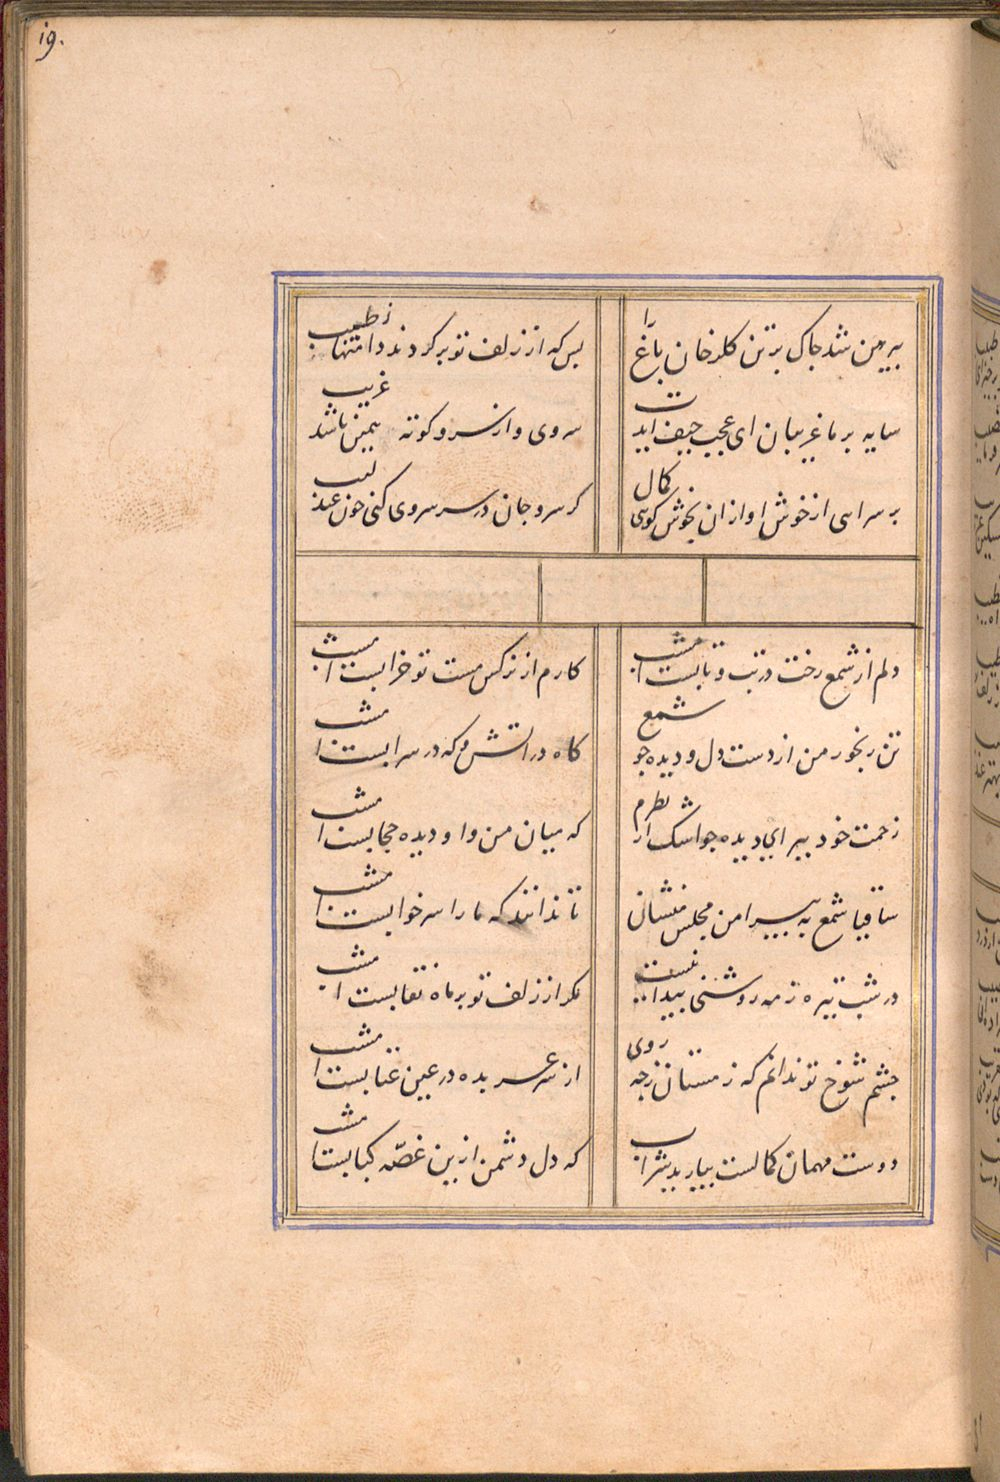 19.
پیرهن شد چاک بر تن کلرخان باغ را
بس که از زلف تو بر کردند دامنها ز طیب
سایه بر ما غریبان ای عجب حیف ایدت
سروی و از سرو کوته یمین باشد غریب
بر سرایی از خوش اوازان بخوش کویی کمال
کر سر و جان در سر سروی کنی جون عندلیب
دلم از شمع رخت در تب و تابست امشب
کارم از نرکس مست تو خرابست امشب
تن رنجور من از دست دل و دیده جو شمع
کاه در اتش و که در سر ابست امشب
زحمت خود ببر ای دیده جو اشک از نظرم
که میان من و او دیده حجابست امشب
ساقیا شمع به پیرامن مجلس منشان
تا ندانند که ما را سر خوابست امشب
در شب تیره ز مه روشنی پیدا نیست
مکر از زلف تو بر ماه نقابست امشب
جشم شوخ تو ندانم که ز مستان ز چه روی
از سر عربده در عین عتابست امشب
دوست مهمان کمالست بیارید شراب
که دل دشمن ازین غصّه کبابست امشب